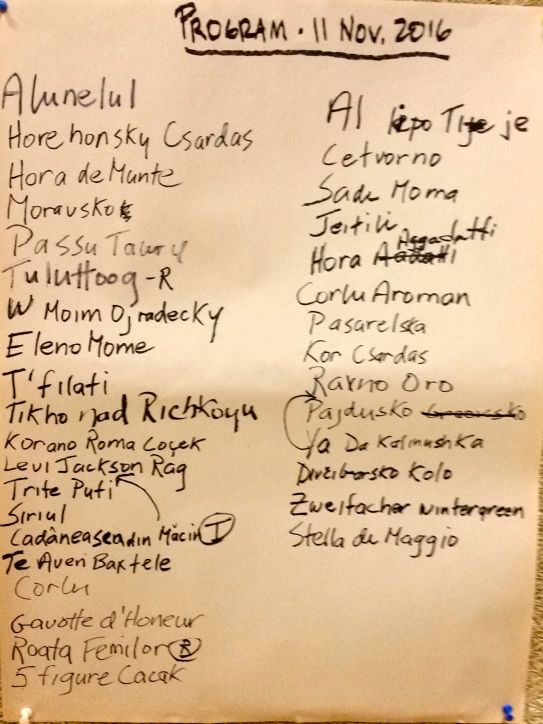 PROGRAM · 11 NOV. 2016
Alunelul
Horehonsky Csardas
Hora de Munte
Moravsko
Passu Taury
Tuluttoog -R
W Moim Ojradecky
Eleno Mome
T'filati
Tikho nad Richkoyu
Korano Roma Coçek
Levi Jackson Rag
Trite Puti
Siriul
Cadâneasea din Măcin I
Te Aven Baxtele
Corlu
Gavotte d'Honeur
Roata Femilor R
5 figure Cacak
Al lipo Tije je
Cetvorno
Sadi Moma
Jeitili
Hora Aggadatti
Corlu Aroman
Pasarelska
Kor Csardas
Ravno Oro
Pajdusko
Ya Da Kalmushka
Divčibarsko Kolo
Zweifacher Wintergreen
Stella di Maggio